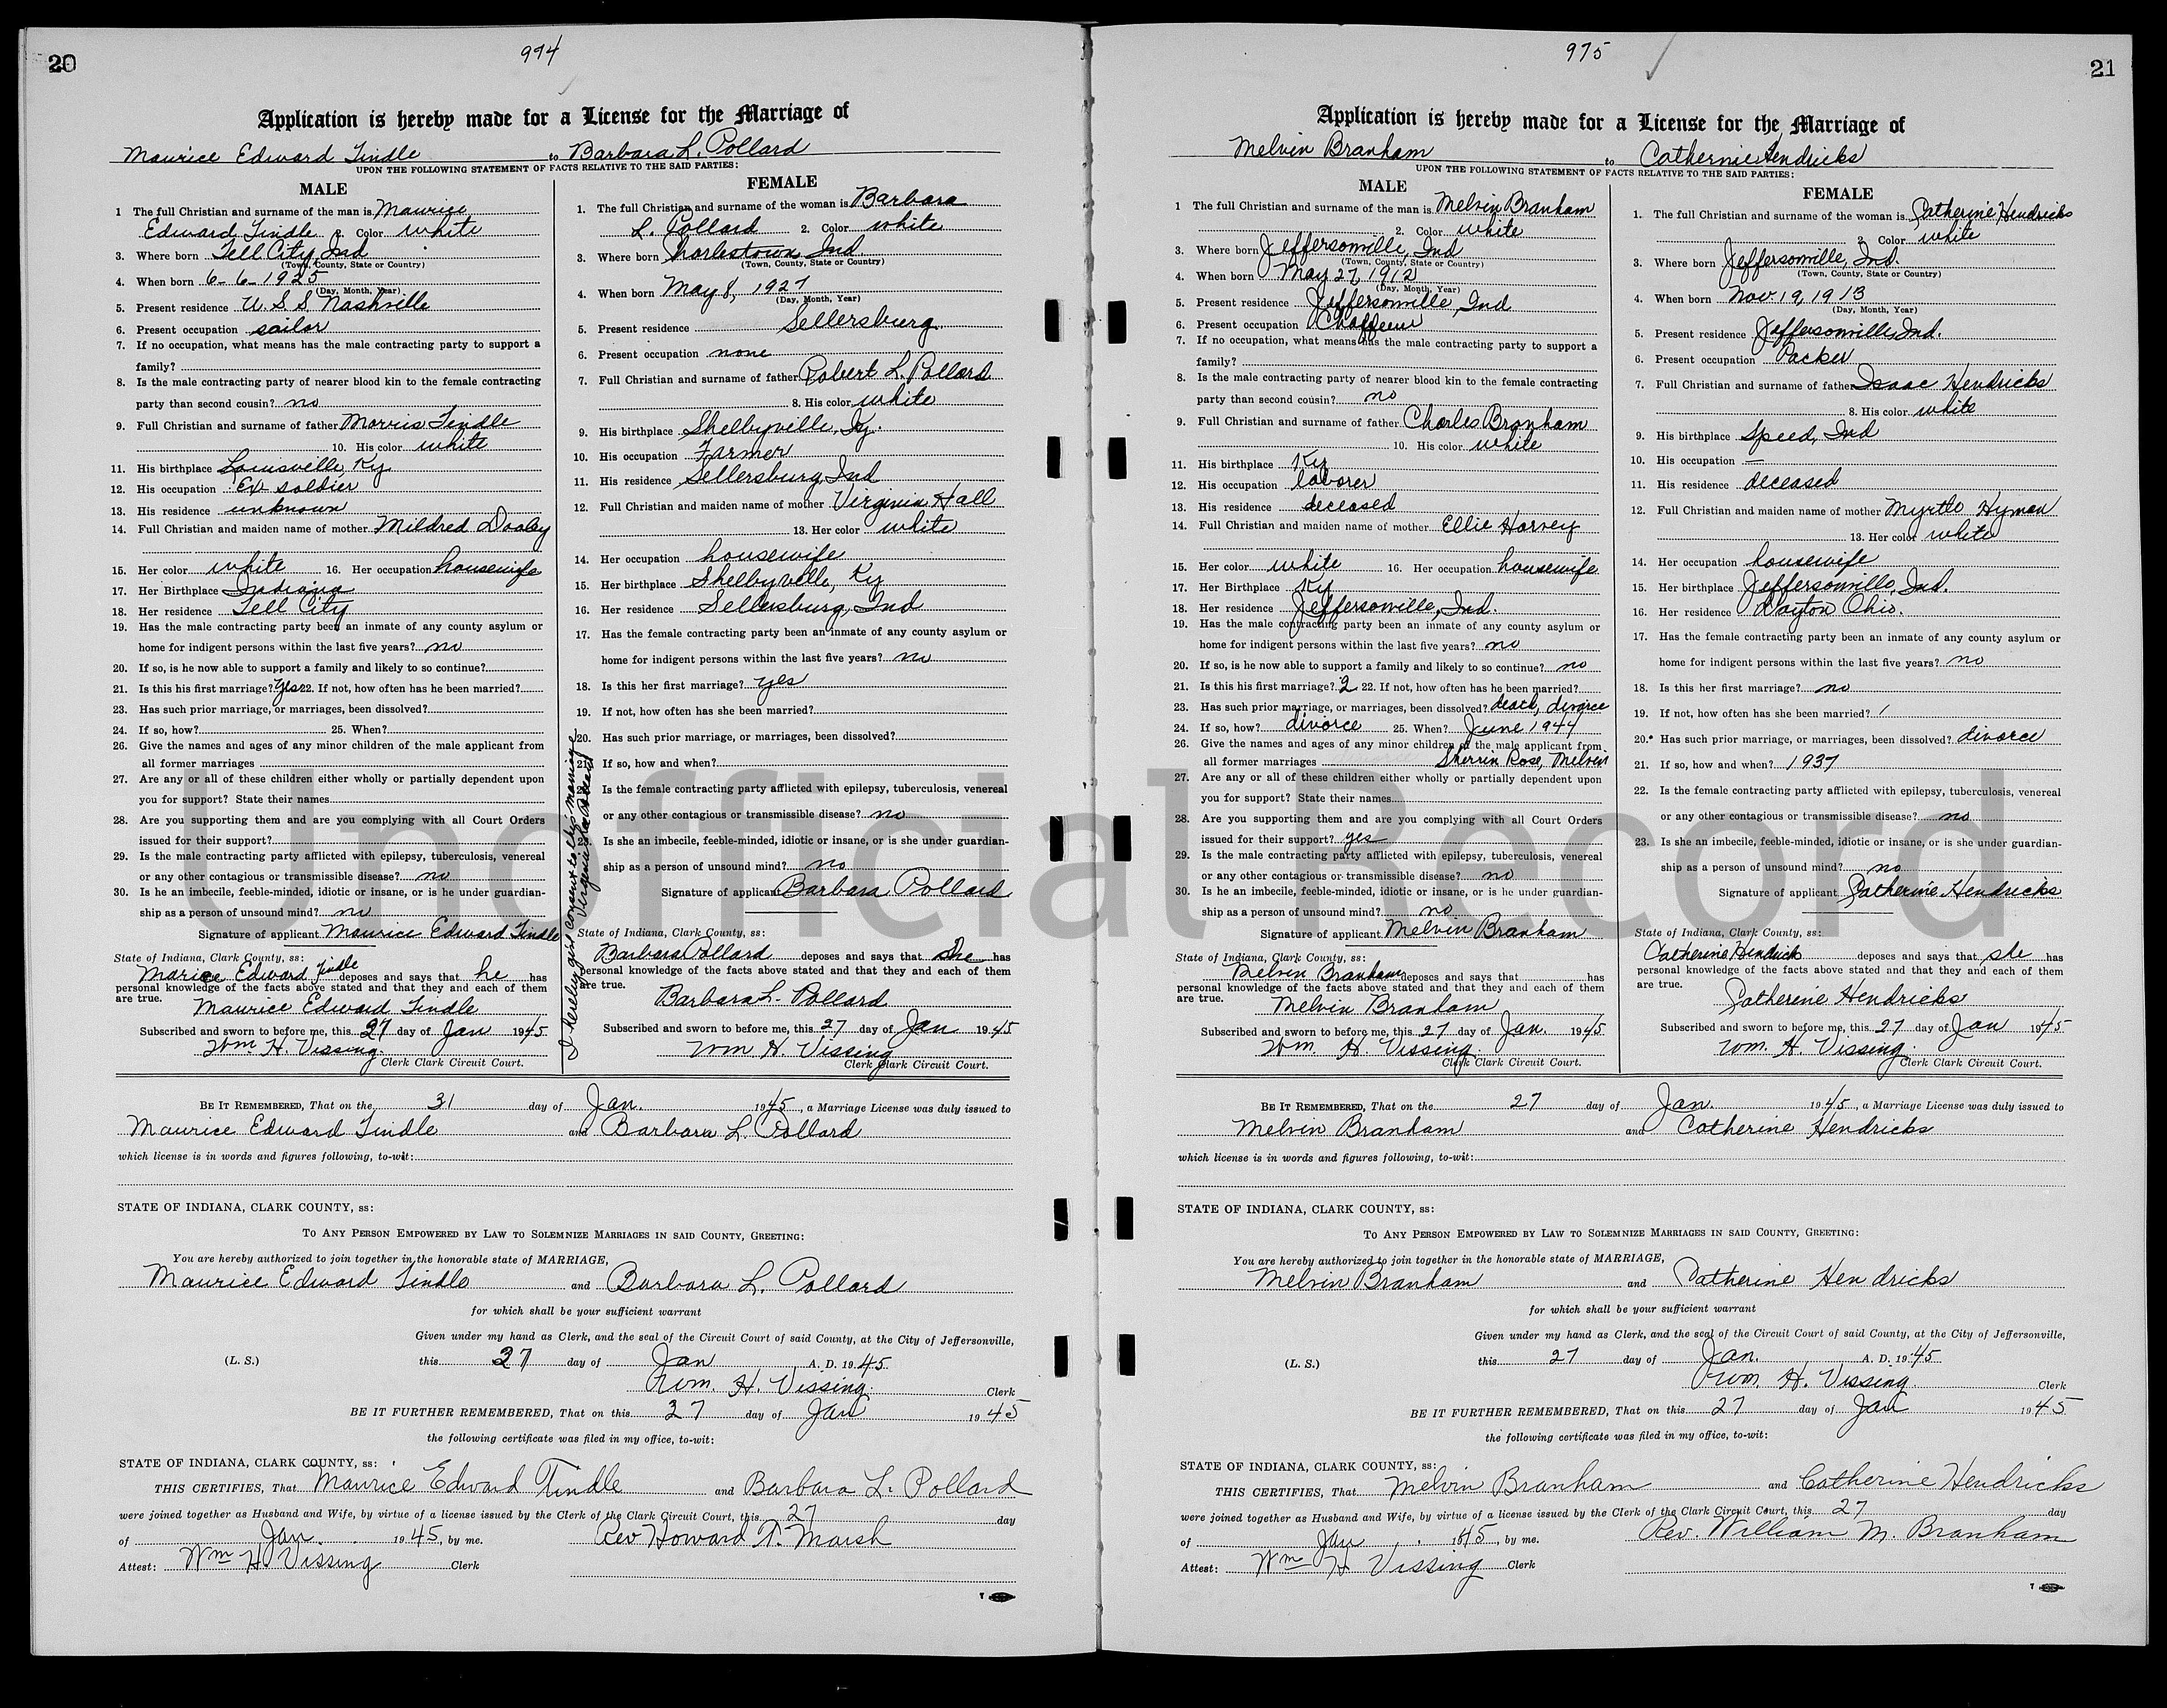 20
974
Application is hereby made for a License for the Marriage of
Maurice Edward Tindle to Barbara L. Pollard
UPON THE FOLLOWING STATEMENT OF FACTS RELATIVE TO THE SAID PARTIES:
MALE
1 The full Christian and surname of the man is Maurice
Edward Tindle 2. Color white
3. Where born Tell City, Ind
(Town, County, State or Country)
4. When born 6-6-1925
(Day, Month, Year)
5. Present residence U.S.S Nashville
6. Present occupation sailor
7. If no occupation, what means has the male contracting party to support a
family?
8. Is the male contracting party of nearer blood kin to the female contracting
party than second cousin? no
9. Full Christian and surname of father Morris Tindle
10. His color white
11. His birthplace Louisville, Ky.
12. His occupation Ex soldier
13. His residence unknown
14. Full Christian and maiden name of mother Mildred Dooley
15. Her color white 16. Her occupation housewife
17. Her Birthplace Indiana
18. Her residence Tell City
19. Has the male contracting party been an inmate of any county asylum or
home for indigent persons within the last five years? no
20. If so, is he now able to support a family and likely to so continue?
21. Is this his first marriage? Yes 22. If not, how often has he been married?
23. Has such prior marriage, or marriages, been dissolved?
24. If so, how? 25. When?
26. Give the names and ages of any minor children of the male applicant from
all former marriages
27. Are any or all of these children either wholly or partially dependent upon
you for support? State their names
28. Are you supporting them and are you complying with all Court Orders
issued for their support?
29. Is the male contracting party afflicted with epilepsy, tuberculosis, venereal
or any other contagious or transmissible disease? no
30. Is he an imbecile, feeble-minded, idiotic or insane, or is he under guardian-
ship as a person of unsound mind? no
Signature of applicant Maurice Edward Tindle
State of Indiana, Clark County, ss:
Marice Edward Tindle deposes and says that he has
personal knowledge of the facts above stated and that they and each of them
are true.
Maurice Edward Tindle
Subscribed and sworn to before me, this 27 day of Jan 1945
Wm. H. Vissing
Clerk Clark Circuit Court.
FEMALE
1. The full Christian and surname of the woman is Barbara
L. Pollard 2. Color white
3. Where born Charlestown Ind.
(Town, County, State or Country)
4. When born May 8, 1927
(Day, Month, Year)
5. Present residence Sellersburg
6. Present occupation none
7. Full Christian and surname of father Robert L. Pollard
8. His color white
9. His birthplace Shelbyville, Ky.
10. His occupation Farmer
11. His residence Sellersburg, Ind
12. Full Christian and maiden name of mother Virginia Hall
13. Her color white
14. Her occupation housewife
15. Her birthplace Shelbyville, Ky
16. Her residence Sellersburg, Ind
17. Has the female contracting party been an inmate of any county asylum or
home for indigent persons within the last five years? no
18. Is this her first marriage? yes
19. If not, how often has she been married?
20. Has such prior marriage, or marriages, been dissolved?
21. If so, how and when?
Is the female contracting party afflicted with epilepsy, tuberculosis, venereal
or any other contagious or transmissible disease? no
Is she an imbecile, feeble-minded, idiotic or insane, or is she under guardian-
ship as a person of unsound mind? no
Signature of applicant Barbara Pollard
State of Indiana, Clark County, ss:
Barbara Pollard deposes and says that she has
personal knowledge of the facts above stated and that they and each of them
are true.
Barbara L. Pollard
Subscribed and sworn to before me, this 27 day of Jan 1945
Wm H. Vissing
Clerk Clark Circuit Court.
I hereby give consent to this marriage
Virginia Pollard
BE IT REMEMBERED, That on the 31 day of Jan. 1945, a Marriage License was duly issued to
Maurice Edward Tindle and Barbara L. Pollard
which license is in words and figures following, to-wit:
STATE OF INDIANA, CLARK COUNTY, ss:
TO ANY PERSON EMPOWERED BY LAW TO SOLEMNIZE MARRIAGES IN SAID COUNTY, GREETING:
You are hereby authorized to join together in the honorable state of MARRIAGE,
Maurice Edward Tindle and Barbara L. Pollard
for which shall be your sufficient warrant
Given under my hand as Clerk, and the seal of the Circuit Court of said County, at the City of Jeffersonville,
(L. S.) this 27 day of Jan A. D. 1945
Wm. H. Vissing Clerk
BE IT FURTHER REMEMBERED, That on this 27 day of Jan 1945
the following certificate was filed in my office, to-wit:
STATE OF INDIANA, CLARK COUNTY, ss:
THIS CERTIFIES, That Maurice Edward Tindle and Barbara L. Pollard
were joined together as Husband and Wife, by virtue of a license issued by the Clerk of the Clark Circuit Court, this 27 day
of Jan. 1945, by me. Rev Howard T. Marsh
Attest: Wm H. Vissing Clerk
975
21
Application is hereby made for a License for the Marriage of
Melvin Branham to Catherine Hendricks
UPON THE FOLLOWING STATEMENT OF FACTS RELATIVE TO THE SAID PARTIES:
MALE
1 The full Christian and surname of the man is Melvin Branham
2. Color white
3. Where born Jeffersonville, Ind
(Town, County, State or Country)
4. When born May 27, 1912
(Day, Month, Year)
5. Present residence Jeffersonville, Ind
6. Present occupation Chaffeur
7. If no occupation, what means has the male contracting party to support a
family?
8. Is the male contracting party of nearer blood kin to the female contracting
party than second cousin? no
9. Full Christian and surname of father Charles Branham
10. His color white
11. His birthplace Ky
12. His occupation laborer
13. His residence deceased
14. Full Christian and maiden name of mother Ellie Harvey
15. Her color white 16. Her occupation housewife
17. Her Birthplace Ky
18. Her residence Jeffersonville, Ind.
19. Has the male contracting party been an inmate of any county asylum or
home for indigent persons within the last five years? no
20. If so, is he now able to support a family and likely to so continue? no
21. Is this his first marriage? 2 22. If not, how often has he been married?
23. Has such prior marriage, or marriages, been dissolved? death, divorce
24. If so, how? divorce 25. When? June 1944
26. Give the names and ages of any minor children of the male applicant from
all former marriages Sherrin Rose, Melvin
27. Are any or all of these children either wholly or partially dependent upon
you for support? State their names
28. Are you supporting them and are you complying with all Court Orders
issued for their support? yes
29. Is the male contracting party afflicted with epilepsy, tuberculosis, venereal
or any other contagious or transmissible disease? no
30. Is he an imbecile, feeble-minded, idiotic or insane, or is he under guardian-
ship as a person of unsound mind? no
Signature of applicant Melvin Branham
State of Indiana, Clark County, ss:
Melvin Branham deposes and says that has
personal knowledge of the facts above stated and that they and each of them
are true.
Melvin Branham
Subscribed and sworn to before me, this 27 day of Jan. 1945
Wm. H. Vissing
Clerk Clark Circuit Court.
FEMALE
1. The full Christian and surname of the woman is Catherine Hendricks
2. Color white
3. Where born Jeffersonville, Ind.
(Town, County, State or Country)
4. When born Nov. 19, 1913
(Day, Month, Year)
5. Present residence Jeffersonville, Ind.
6. Present occupation Packer
7. Full Christian and surname of father Isaac Hendricks
8. His color white
9. His birthplace Speed, Ind
10. His occupation —
11. His residence deceased
12. Full Christian and maiden name of mother Myrtle Hyman
13. Her color white
14. Her occupation housewife
15. Her birthplace Jeffersonville, Ind.
16. Her residence Dayton Ohio.
17. Has the female contracting party been an inmate of any county asylum or
home for indigent persons within the last five years? no
18. Is this her first marriage? no
19. If not, how often has she been married? 1
20. Has such prior marriage, or marriages, been dissolved? divorce
21. If so, how and when? 1937
22. Is the female contracting party afflicted with epilepsy, tuberculosis, venereal
or any other contagious or transmissible disease? no
23. Is she an imbecile, feeble-minded, idiotic or insane, or is she under guardian-
ship as a person of unsound mind? no
Signature of applicant Catherine Hendricks
State of Indiana, Clark County, ss:
Catherine Hendrick deposes and says that she has
personal knowledge of the facts above stated and that they and each of them
are true.
Catherine Hendricks
Subscribed and sworn to before me, this 27 day of Jan 1945
Wm. H. Vissing
Clerk Clark Circuit Court.
BE IT REMEMBERED, That on the 27 day of Jan. 1945, a Marriage License was duly issued to
Melvin Branham and Catherine Hendricks
which license is in words and figures following, to-wit:
STATE OF INDIANA, CLARK COUNTY, ss:
TO ANY PERSON EMPOWERED BY LAW TO SOLEMNIZE MARRIAGES IN SAID COUNTY, GREETING:
You are hereby authorized to join together in the honorable state of MARRIAGE,
Melvin Branham and Catherine Hendricks
for which shall be your sufficient warrant
Given under my hand as Clerk, and the seal of the Circuit Court of said County, at the City of Jeffersonville,
(L. S.) this 27 day of Jan. A. D. 1945
Wm. H. Vissing Clerk
BE IT FURTHER REMEMBERED, That on this 27 day of Jan 1945
the following certificate was filed in my office, to-wit:
STATE OF INDIANA, CLARK COUNTY, ss:
THIS CERTIFIES, That Melvin Branham and Catherine Hendricks
were joined together as Husband and Wife, by virtue of a license issued by the Clerk of the Clark Circuit Court, this 27 day
of Jan 1945, by me. Rev. William M. Branham
Attest: Wm H Vissing Clerk
Unofficial Record